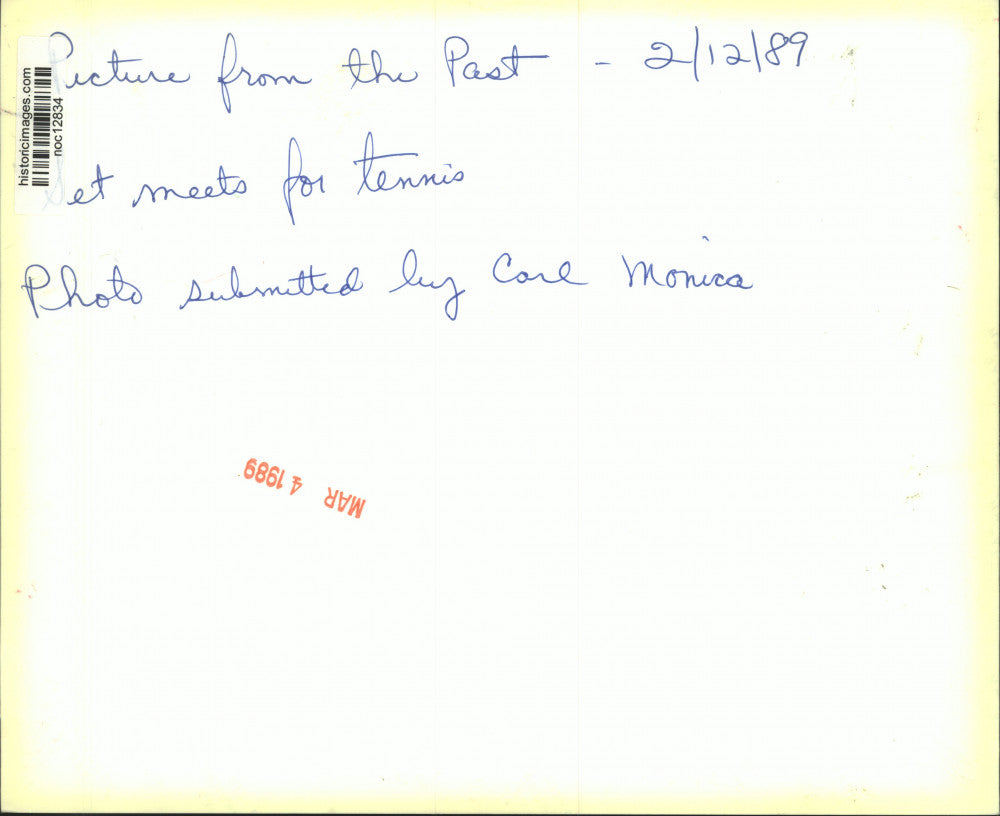 Picture from the Past - 2/12/89
Set meets for tennis
Photo submitted by Carl Monica
MAR 4 1989
historicimages.com
noc12834